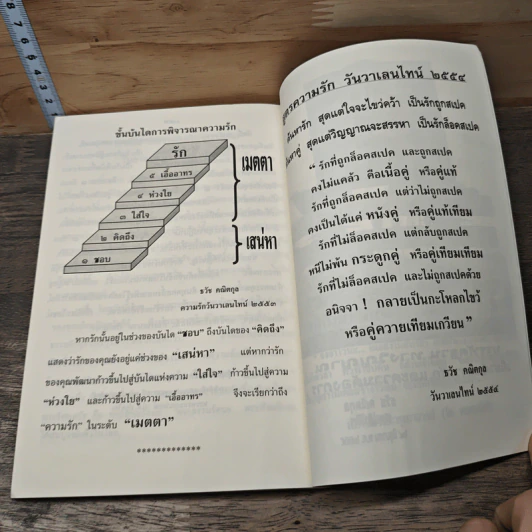 ขั้นบันไดการพิจารณาความรัก
รัก
๕ เอื้ออาทร
๔ ห่วงใย
๓ ใส่ใจ
๒ คิดถึง
๑ ชอบ
เมตตา
เสน่หา
ธวัช คณิตกุล
ความรักวันวาเลนไทน์ ๒๕๕๓
หากรักนั้นอยู่ในช่วงของบันได "ชอบ" ถึงบันไดของ "คิดถึง"
แสดงว่ารักของคุณยังอยู่แค่ช่วงของ "เสน่หา" แต่หากว่ารัก
ของคุณพัฒนาก้าวขึ้นไปสู่บันไดแห่งความ "ใส่ใจ" ก้าวขึ้นไปสู่ความ
"ห่วงใย" และก้าวขึ้นไปสู่ความ "เอื้ออาทร" จึงจะเรียกว่าถึง
"ความรัก" ในระดับ "เมตตา"
*************
สูตรความรัก วันวาเลนไทน์ ๒๕๕๔
ค้นหารัก สุดแต่ใจจะไขว่คว้า เป็นรักถูกสเปค
สุดแต่วิญญาณจะสรรหา เป็นรักล็อคสเปค
" รักที่ถูกล็อคสเปค และถูกสเปค
คงไม่แคล้ว คือเนื้อคู่ หรือคู่แท้
รักที่ถูกล็อคสเปค แต่ว่าไม่ถูกสเปค
คงเป็นได้แค่ หนังคู่ หรือคู่แท้เทียม
รักที่ไม่ล็อคสเปค แต่กลับถูกสเปค
หนีไม่พ้น กระดูกคู่ หรือคู่เทียมเทียม
รักที่ไม่ล็อคสเปค และไม่ถูกสเปคด้วย
อนิจจา ! กลายเป็นกะโหลกไขว้
หรือคู่ควายเทียมเกวียน"
ธวัช คณิตกุล
วันวาเลนไทน์ ๒๕๕๔
8
7
5
4
3
2